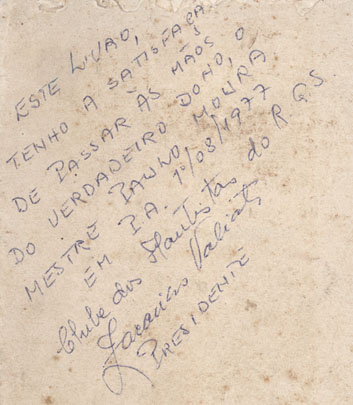 ESTE LIVRO,
TENHO A SATISFAÇA
DE PASSAR ÀS MÃOS O
DO VERDADEIRO DONO,
MESTRE MOURA
EM P.A. 1º/08/1977
Clube dos Flautistas do R.G.S.
PRESIDENTE